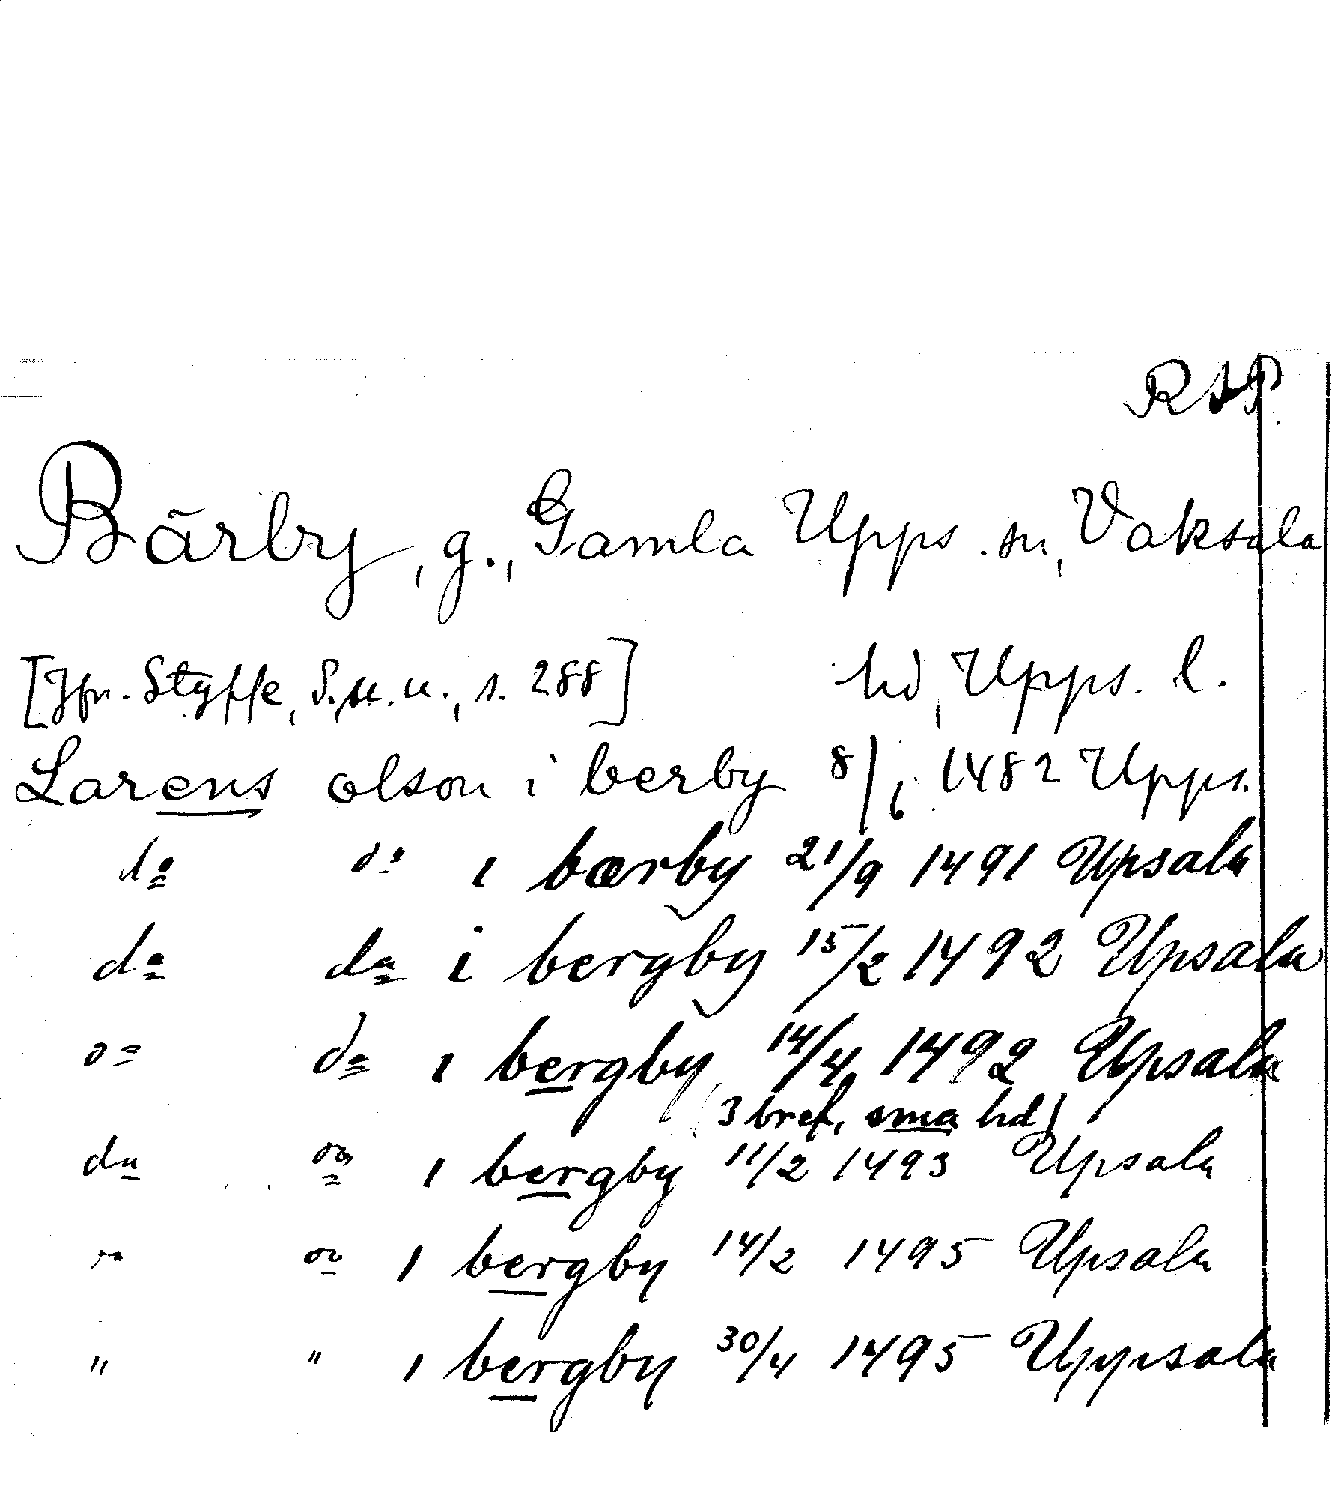 RAP.
Bärby, g., Gamla Upps. sn, Vaksala
[Jfr. Styffe, S.u.u., s. 288] hd, Upps. l.
Larens olson i berby 8/6 1482 Upps.
do do i bærby 21/9 1491 Upsala
do do i bergby 15/2 1492 Upsala
do do i bergby 14/4 1492 Upsala
(3 bref, sma hd)
do do i bergby 11/2 1493 Upsala
do do i bergby 14/2 1495 Upsala
" " i bergby 30/4 1495 Uppsala